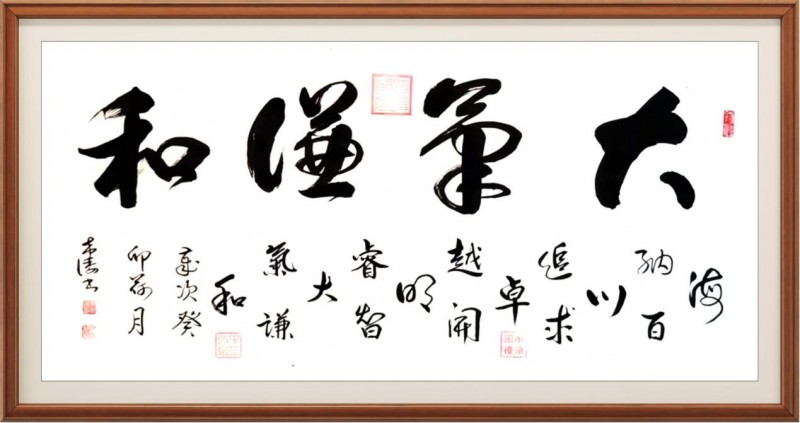 大氣謙和
海
納百
川
追求
卓
越開
明
睿智
大
氣謙
和
歲次癸
卯荷月